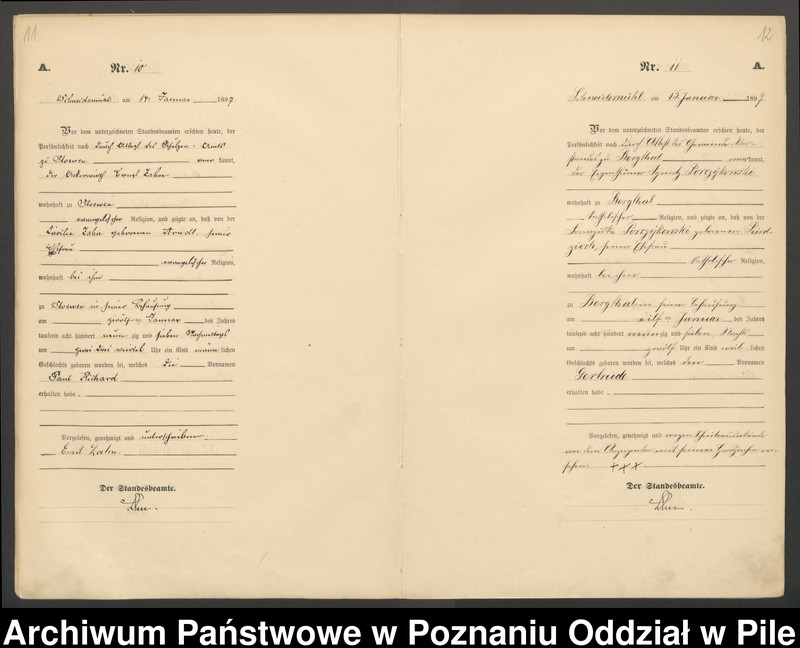 11
A. Nr. 10
Schneidemühl am 14. Januar 1897
Vor dem unterzeichneten Standesbeamten erschien heute, der
Persönlichkeit nach durch Attest des Schulzen-Amts
zu Stoewen anerkannt,
der Ackerwirth Ernst Zahn
wohnhaft zu Stoewen
evangelischer Religion, und zeigte an, daß von der
Zahn geborenen Arndt, seiner
Ehefrau
evangelischer Religion,
wohnhaft bei ihm
zu Stoewen in seiner Behausung
am zwölften Januar des Jahres
tausend acht hundert neunzig und sieben Nachmittags
um zwei drei viertel Uhr ein Kind männlichen
Geschlechts geboren worden sei, welches die Vornamen
Paul Richard
erhalten habe.
Vorgelesen, genehmigt und unterschrieben.
Ernst Zahn.
Der Standesbeamte.
12
Nr. 11 A.
Schneidemühl am 15. Januar 1897
Vor dem unterzeichneten Standesbeamten erschien heute, der
Persönlichkeit nach durch Attest des Gemeinde-Vor-
standes zu Borgthal anerkannt,
der Eigenthümer Ignatz Porczykowski
wohnhaft zu Borgthal
katholischer Religion, und zeigte an, daß von der
Porczykowski geborenen
seiner Ehefrau
katholischer Religion,
wohnhaft bei ihm
zu Borgthal in seiner Behausung
am elften Januar des Jahres
tausend acht hundert neunzig und sieben Nachts
um zwölf Uhr ein Kind weiblichen
Geschlechts geboren worden sei, welches den Vornamen
Gertrude
erhalten habe.
Vorgelesen, genehmigt und wegen Schreibensunkunde
von dem Anzeigenden mit seinem Handzeichen ver-
sehen +++
Der Standesbeamte.
Archiwum Państwowe w Poznaniu Oddział w Pile